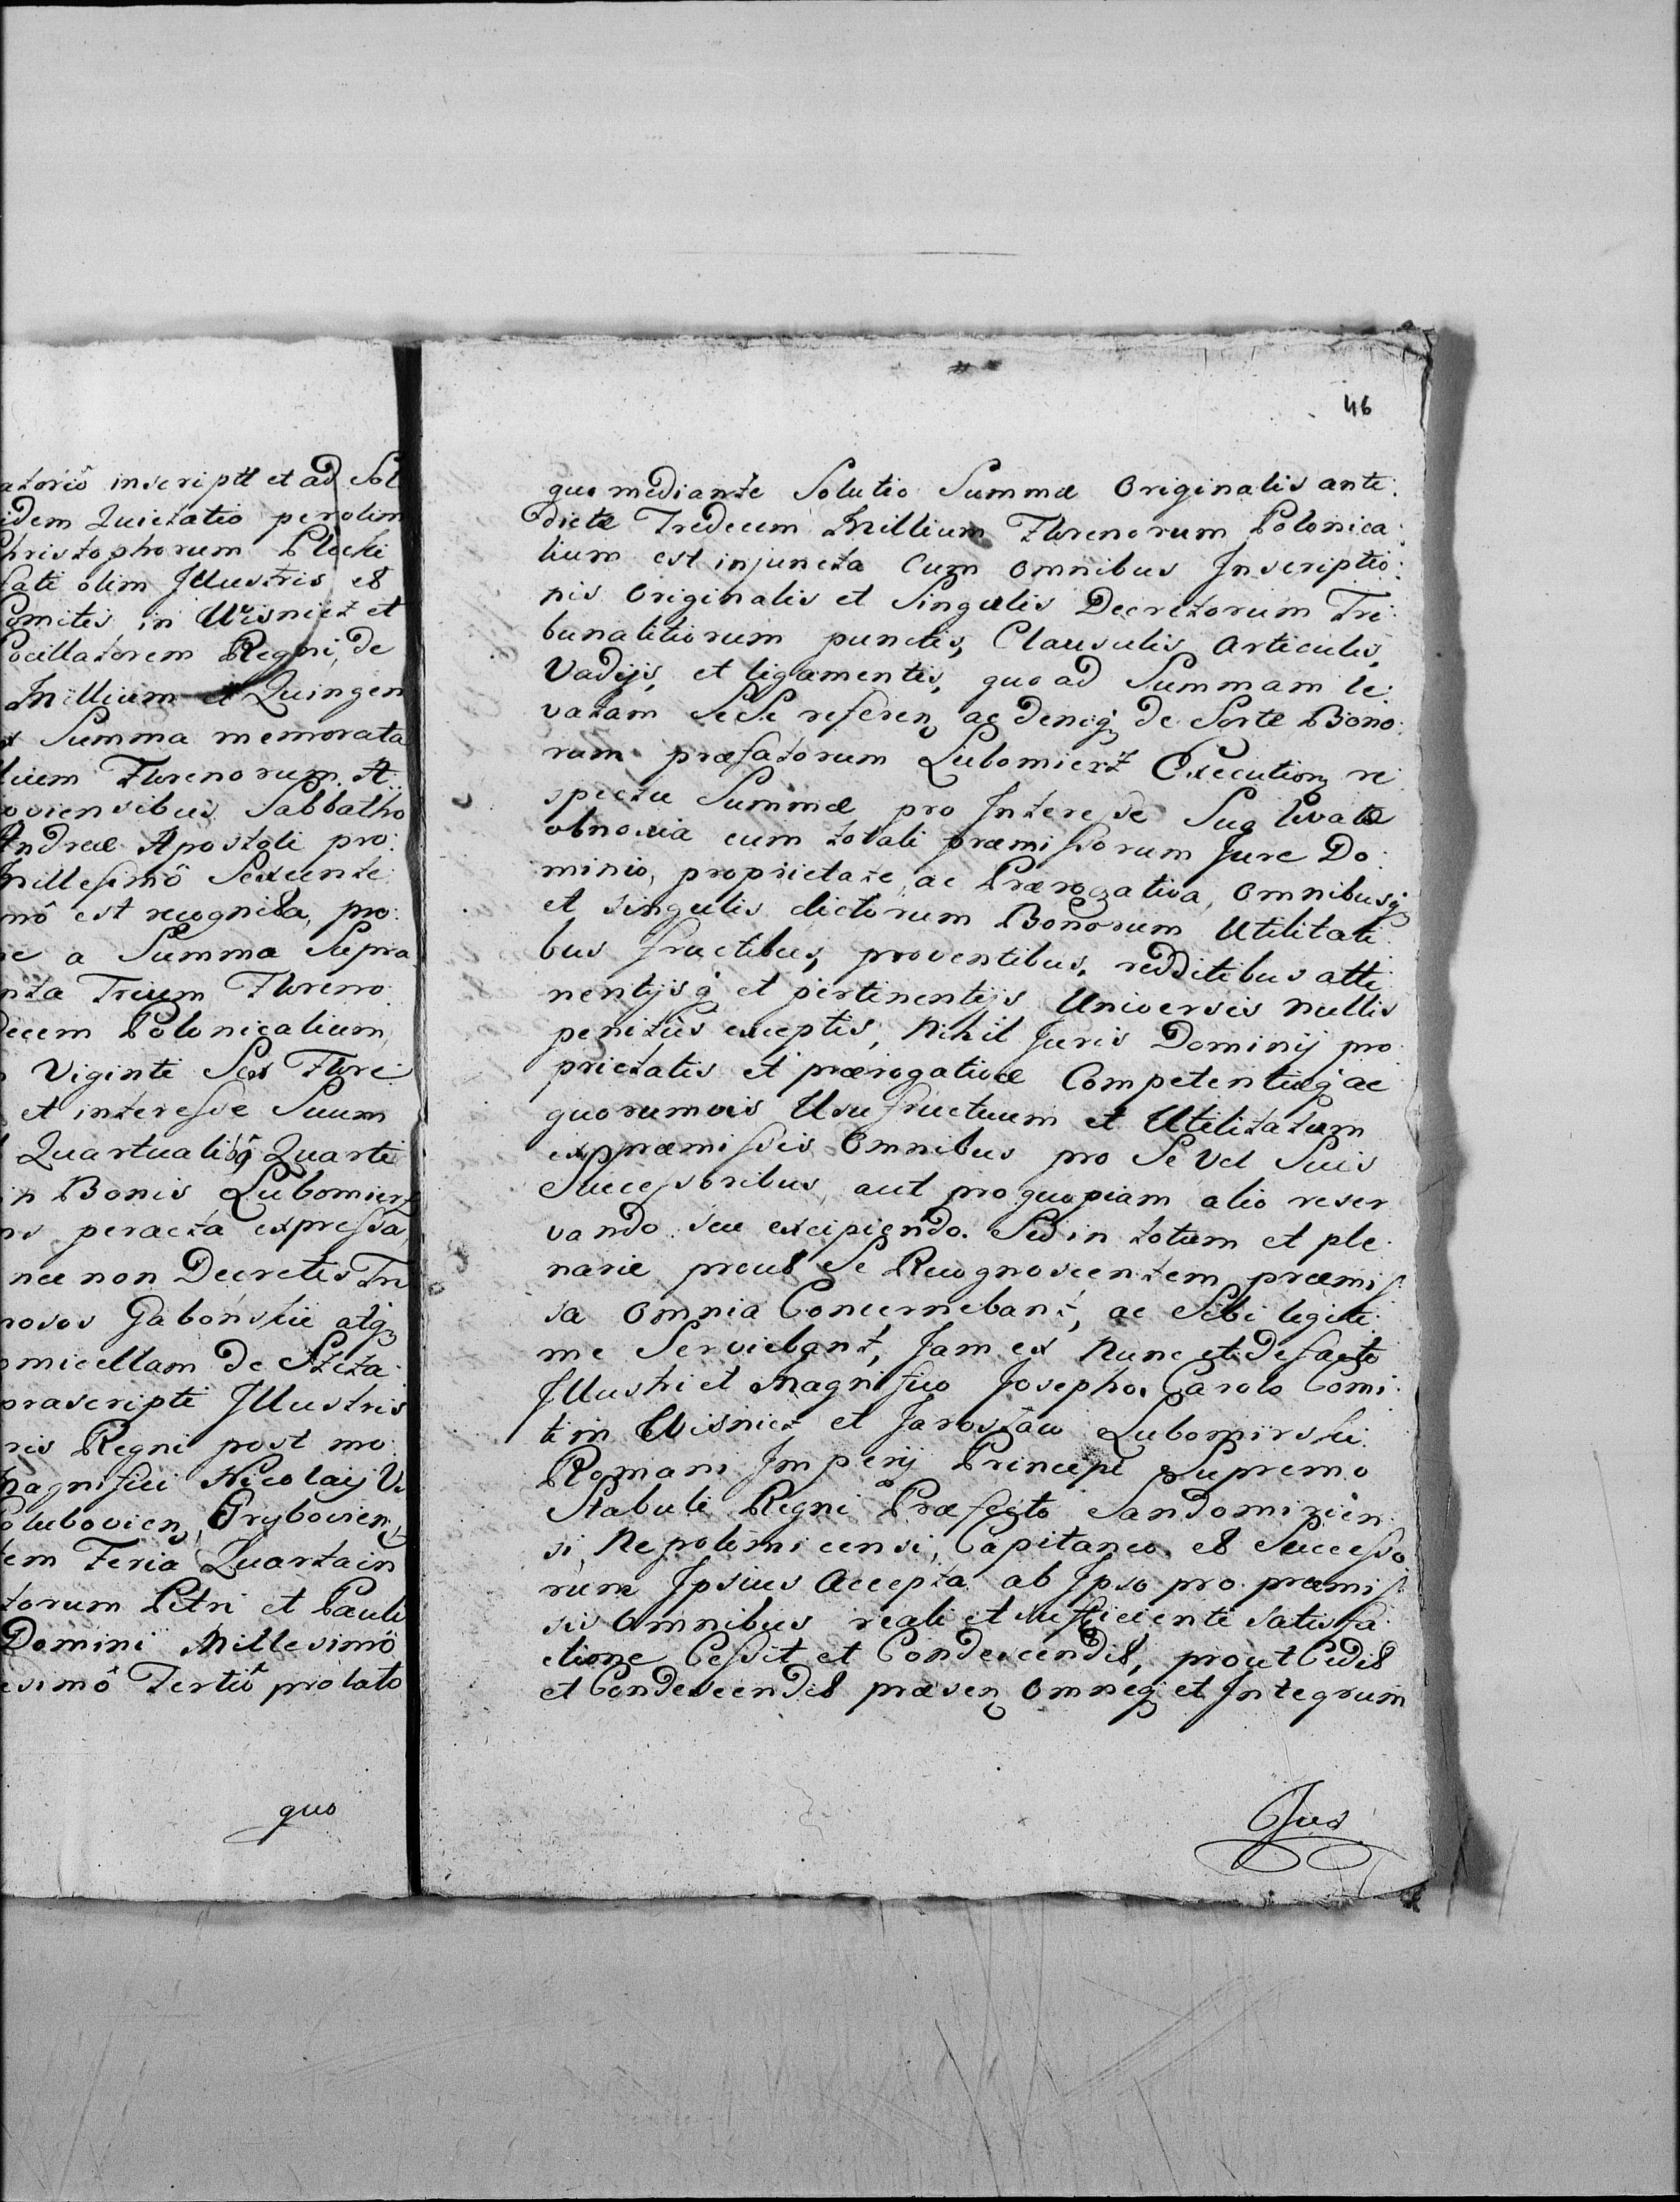 atoriô inscriptt et ad Sol
idem Quietatio per olim
Christophorum Plocki
fati olim Illustris et
Comitis in Wisnicz et
Pocillatorem Regni, de
Millium et Quingen
x Summa memorata
lium Florenorum A
oviensibus Sabbatho
Andreæ Apostoli pro:
Millesimô Sexcente
mô est recognita, pro:
ie a Summa Supra
nta Trium Floreno
decem Polonicalium,
Viginti Sex Flore
et interesse Suum
Quartualibq̃ Quarti
in Bonis Lubomierz
ns peracta expressa
nec non Decretis Tri
nosos Gabonskie atq
omicellam de
præscripti Illustris
ris Regni post mo
Magnifici Nicolaij
olubovien, Grybovien
tem Feria Quarta in
torum Petri et Pauli
Domini Millesimô
esimô Tertiô prolato
quo
46
quo mediante Solutio Summæ Originalis ante:
dictæ Tredecim Millium Florenorum Polonica:
lium est injuncta Cum omnibus Inscriptio:
nis Originalis et Singulis Decretorum Tri:
bunalitiorum punctis, Clausulis Articulis,
Vadijs, et ligamentis, quo ad Summam le:
vatam SeSe referen ac deniq de Sorte Bono:
rum præfatorum Lubomierz Execution re
spectu Summæ pro Interesse Suo levatæ
obnoxia cum totali præmissorum Jure Do:
minio, proprietate, ac Prærogativa, omnibusq
et singulis dictorum Bonorum Utilitati
bus fructibus, proventibus, redditibus atti
nentijsq et pertinentijs Universis nullis
penitus exceptis, Nihil Juris Dominij pro
prietatis et prærogativæ Competentiæq ac
quorumvis Usufructuum et Utilitatum
ex præmissis Omnibus pro Se Vel Suis
Successoribus, aut pro quopiam alio reser
vando seu excipiendo. Sed in totum et ple
narie prout Se Recognoscentem præmis
sa Omnia Concernebant, ac Sibi legiti
me Serviebant, Jam ex Nunc et de facto
Illustri et Magnifico Josepho Carolo Comi
ti in Wisnicz et Jarosław Lubomirski
Romani Imperij Principi Supremo
Stabuli Regni Præfecto Sandomirien
si, Nepolomicensi, Capitaneo et Successo
rum Ipsius Accepta ab Ipso pro præmis
sis Omnibus reali et sufficienti satisfa
ctione Cessit et Condescendit, prout Cedit
et Condescendit præsen Omneq et Integrum
Jus